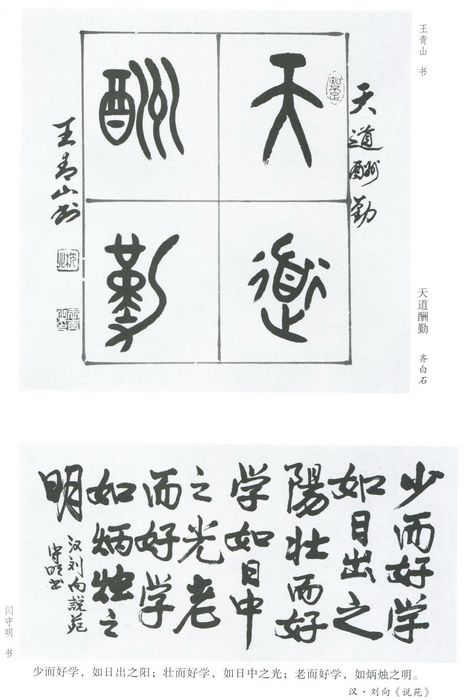 王青山 书
天道酬勤
天道
酬勤
王青山书
天道酬勤 齐白石
少而好学
如日出之
陽壮而好
学如日中
之光老
而好学
如炳烛之
明
汉刘向説苑
守明书
闫守明 书
少而好学，如日出之阳；壮而好学，如日中之光；老而好学，如炳烛之明。
汉·刘向《说苑》